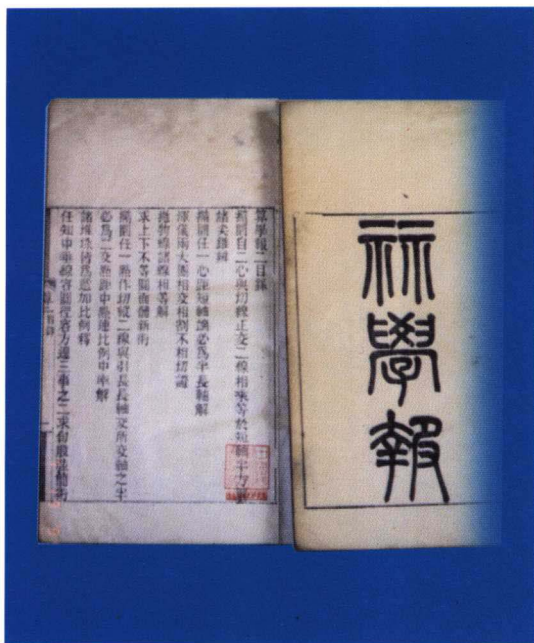 祘學報
算學報二目錄
橢圓自二心與切線正交二線相乘等於短軸半方
橢圓任一心距短軸端必為半長軸解
渾儀兩大圈相交相割不相切證
拋物線諸線相等解
求上下不等圓面體新術
橢圓任一點作切線二線與引長長軸交所交軸之半
必為二交點距中點連比例中率解
任知中垂線容圓徑容方邊三事之二求勾股弦簡術